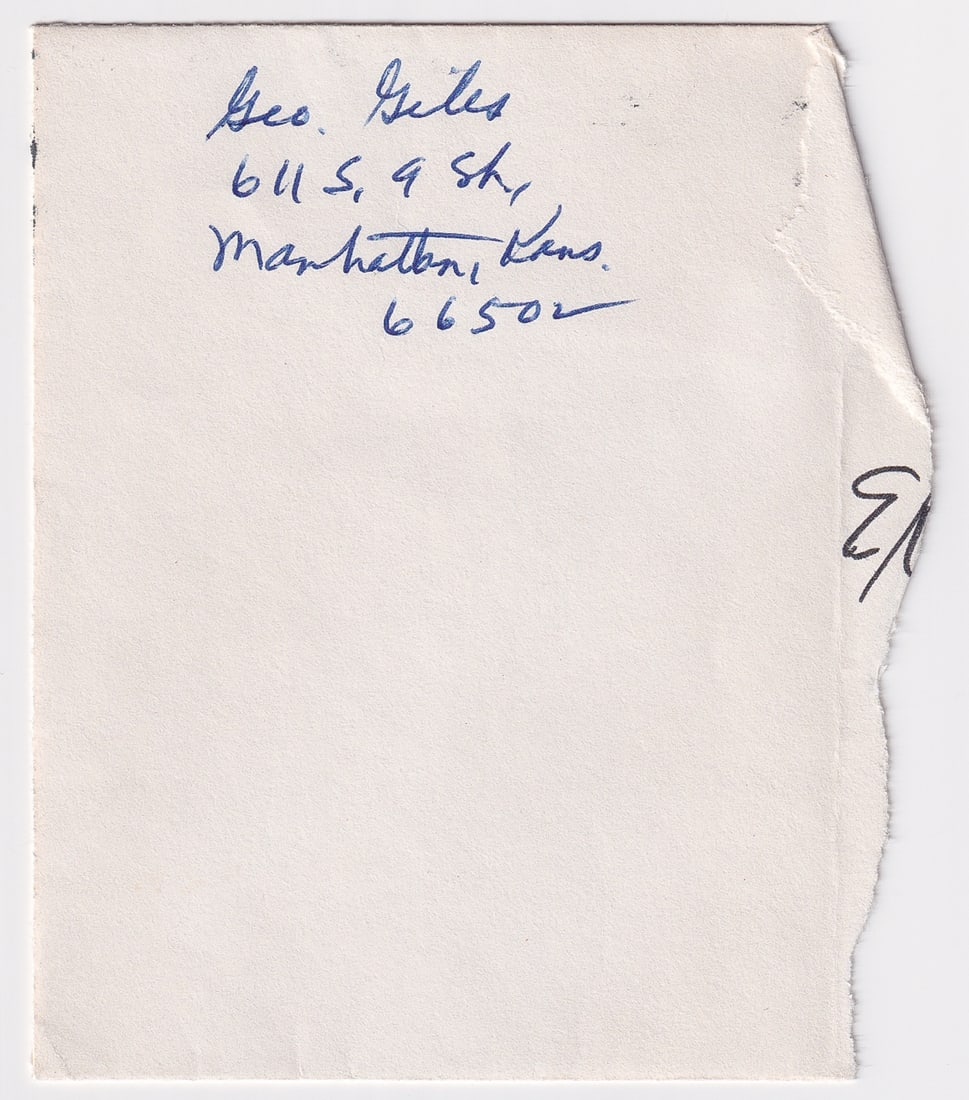 Geo. Giles
611 S. 9 St.,
Manhattan, Kans.
66502